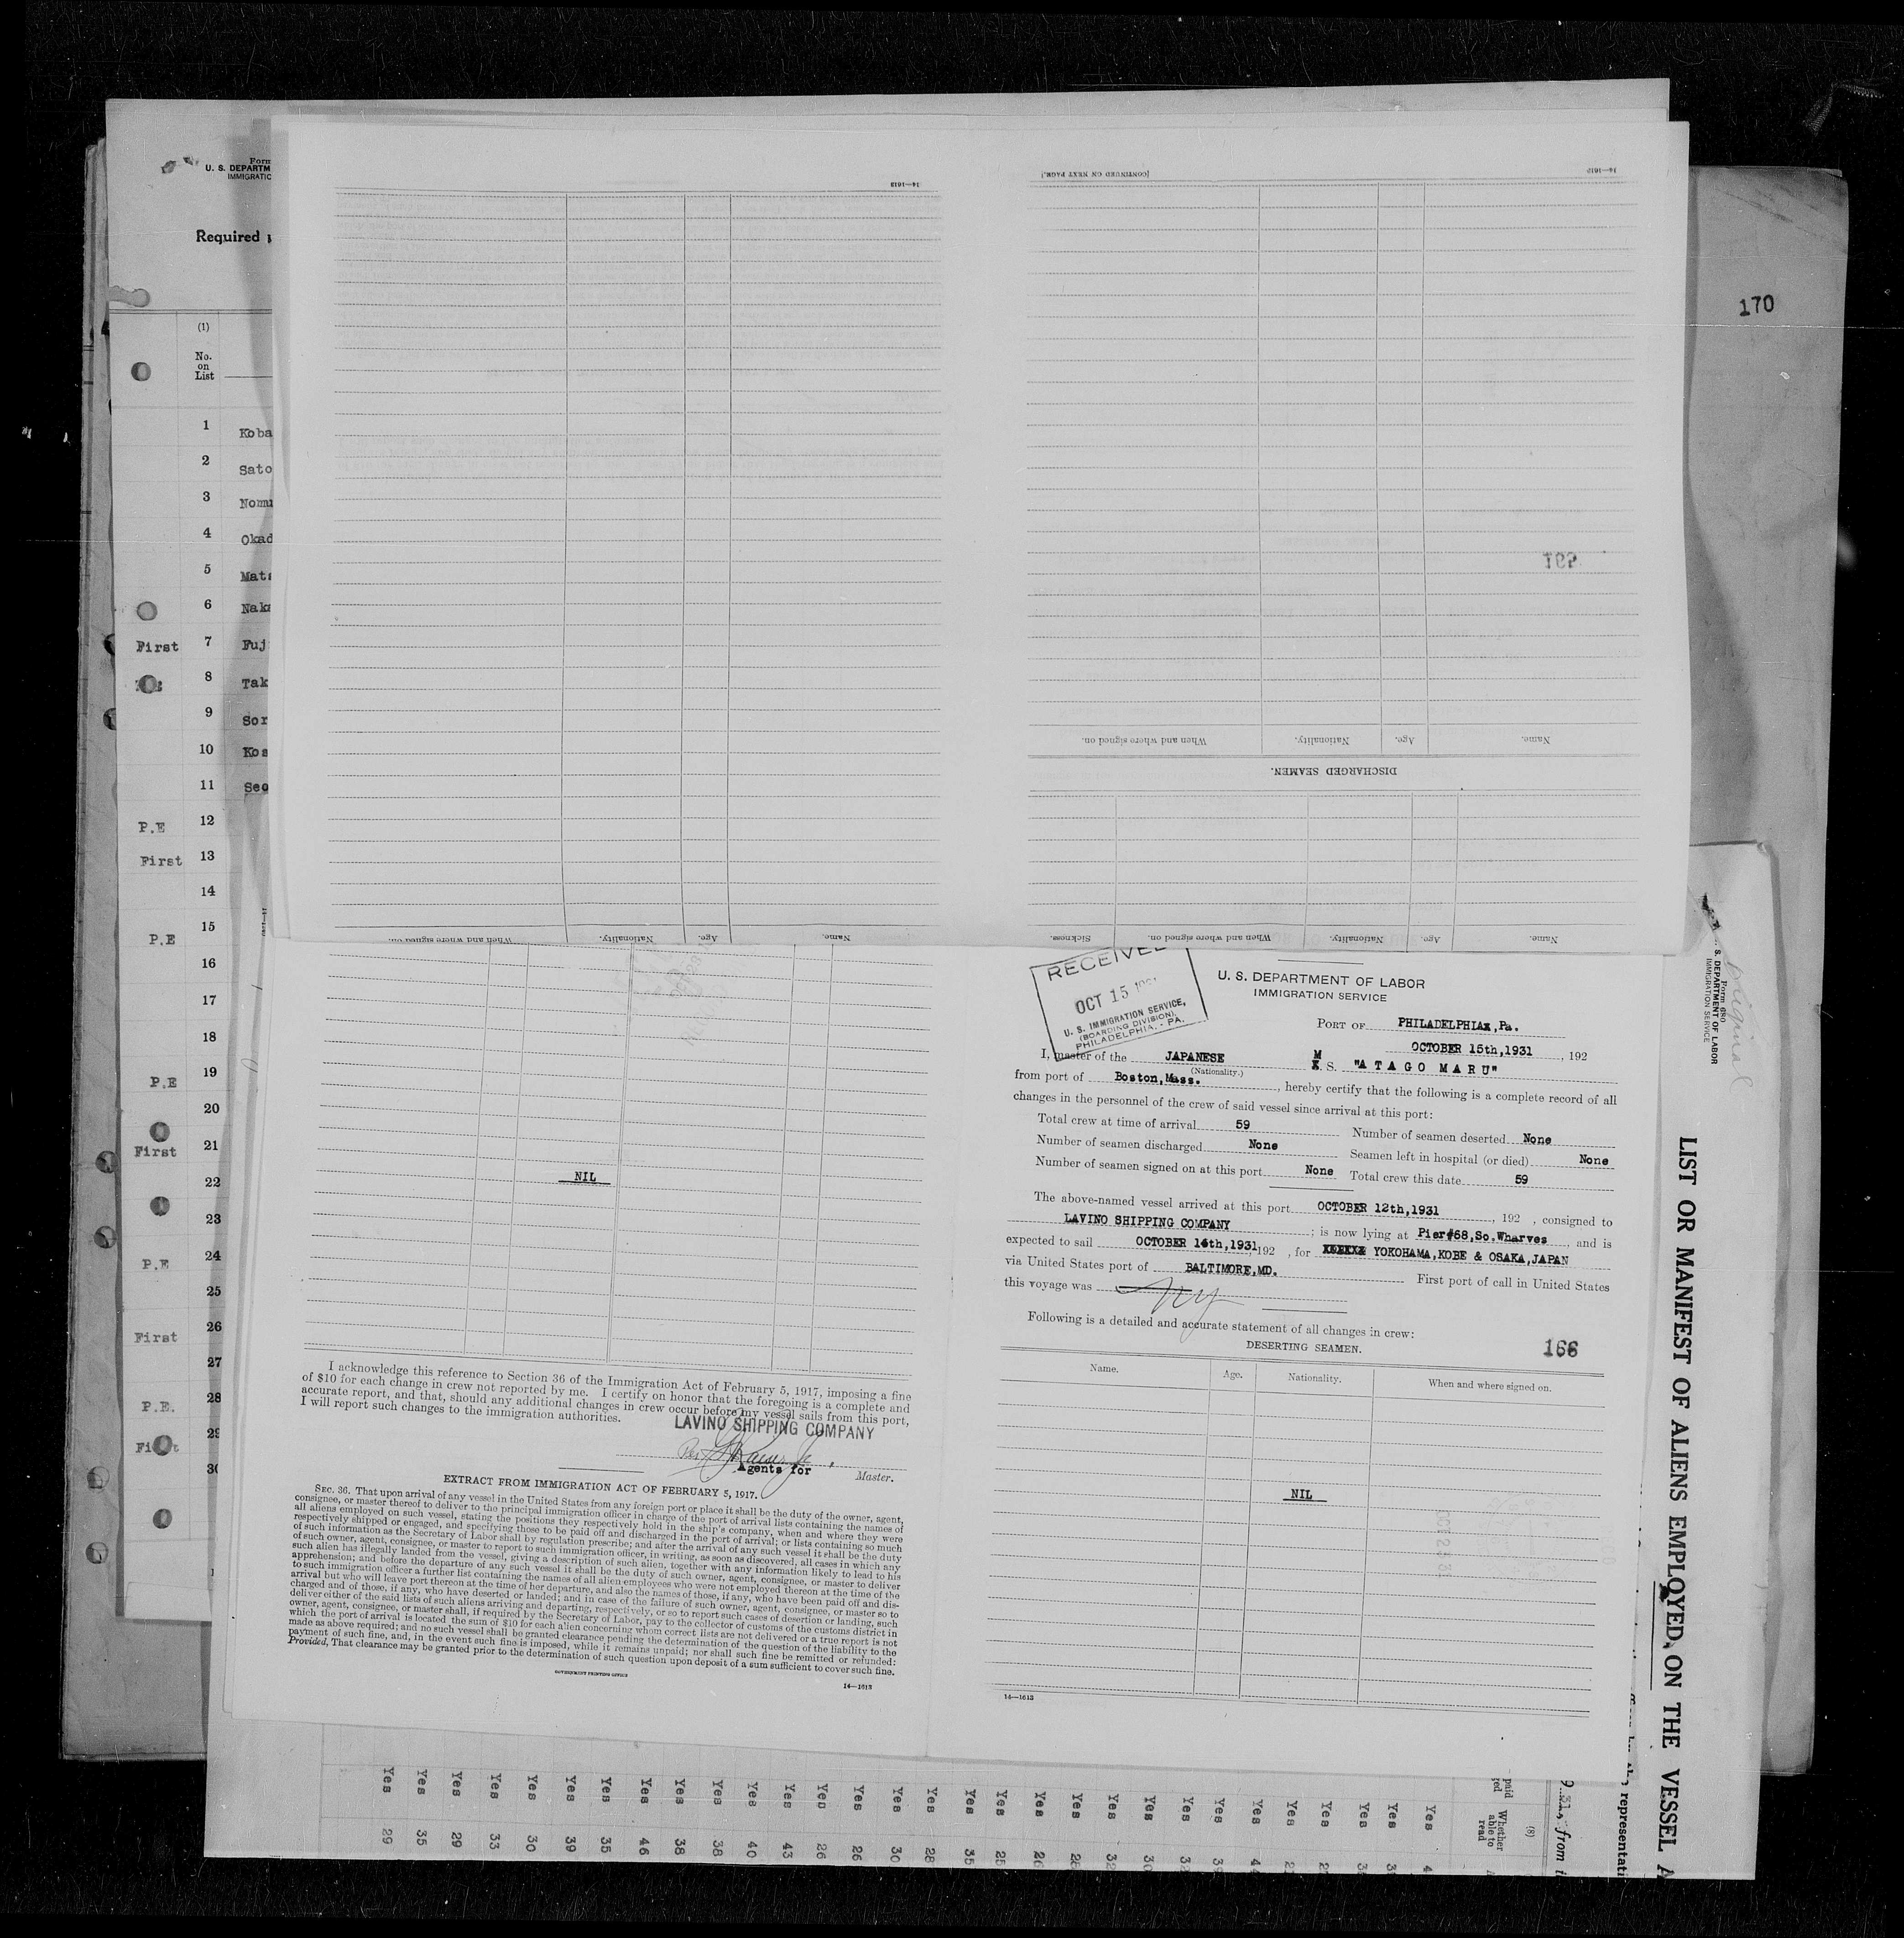 Form
U. S. DEPARTM
IMMIGRATIC
Required
(1)
No.
on
List
1 Koba
2 Sato
3 Nomu
4 Okad
5 Mats
6 Naka
First 7 Fuj
8 Tak
9 Sor
10 Kos
11 Seo
P.E 12
First 13
14
P.E 15
16
17
18
P.E 19
20
First 21
22
23
P.E 24
25
First 26
27
P.E. 28
29
14—1613
[CONTINUED ON NEXT PAGE.]
14—1613
170
Name. Age. Nationality. When and where signed on.
DISCHARGED SEAMEN.
Name. Age. Nationality. When and where signed on.
Name. Age. Nationality. When and where signed on. Sickness.
NIL
I acknowledge this reference to Section 36 of the Immigration Act of February 5, 1917, imposing a fine
of $10 for each change in crew not reported by me. I certify on honor that the foregoing is a complete and
accurate report, and that, should any additional changes in crew occur before my vessel sails from this port,
I will report such changes to the immigration authorities.
LAVINO SHIPPING COMPANY
Per
Agents for Master.
EXTRACT FROM IMMIGRATION ACT OF FEBRUARY 5, 1917.
SEC. 36. That upon arrival of any vessel in the United States from any foreign port or place it shall be the duty of the owner, agent,
consignee, or master thereof to deliver to the principal immigration officer in charge of the port of arrival lists containing the names of
all aliens employed on such vessel, stating the positions they respectively hold in the ship's company, when and where they were
respectively shipped or engaged, and specifying those to be paid off and discharged in the port of arrival; or lists containing so much
of such information as the Secretary of Labor shall by regulation prescribe; and after the arrival of any such vessel it shall be the duty
of such owner, agent, consignee, or master to report to such immigration officer, in writing, as soon as discovered, all cases in which any
such alien has illegally landed from the vessel, giving a description of such alien, together with any information likely to lead to his
apprehension; and before the departure of any such vessel it shall be the duty of such owner, agent, consignee, or master to deliver
to such immigration officer a further list containing the names of all alien employees who were not employed thereon at the time of the
arrival but who will leave port thereon at the time of her departure, and also the names of those, if any, who have been paid off and dis-
charged and of those, if any, who have deserted or landed; and in case of the failure of such owner, agent, consignee, or master so to
deliver either of the said lists of such aliens arriving and departing, respectively, or so to report such cases of desertion or landing, such
owner, agent, consignee, or master shall, if required by the Secretary of Labor, pay to the collector of customs of the customs district in
which the port of arrival is located the sum of $10 for each alien concerning whom correct lists are not delivered or a true report is not
made as above required; and no such vessel shall be granted clearance pending the determination of the question of the liability to the
payment of such fine, and, in the event such fine is imposed, while it remains unpaid; nor shall such fine be remitted or refunded:
Provided, That clearance may be granted prior to the determination of such question upon deposit of a sum sufficient to cover such fine.
GOVERNMENT PRINTING OFFICE
14—1613
RECEIVED
OCT 15 1931
U. S. IMMIGRATION SERVICE,
(BOARDING DIVISION),
PHILADELPHIA, - PA.
U. S. DEPARTMENT OF LABOR
IMMIGRATION SERVICE
PORT OF PHILADELPHIA, Pa.
OCTOBER 15th,1931, 192
I, master of the JAPANESE M S. "A T A G O M A R U"
(Nationality.)
from port of Boston,Mass., hereby certify that the following is a complete record of all
changes in the personnel of the crew of said vessel since arrival at this port:
Total crew at time of arrival 59 Number of seamen deserted None
Number of seamen discharged None Seamen left in hospital (or died) None
Number of seamen signed on at this port None Total crew this date 59
The above-named vessel arrived at this port OCTOBER 12th,1931, 192 , consigned to
LAVINO SHIPPING COMPANY ; is now lying at Pier#68,So.Wharves, and is
expected to sail OCTOBER 16th,1931,192 , for YOKOHAMA,KOBE & OSAKA,JAPAN
via United States port of BALTIMORE,MD. First port of call in United States
this voyage was NY
Following is a detailed and accurate statement of all changes in crew:
166
DESERTING SEAMEN.
Name. Age. Nationality. When and where signed on.
NIL
14—1613
Original
Form 680
U. S. DEPARTMENT OF LABOR
IMMIGRATION SERVICE
LIST OR MANIFEST OF ALIENS EMPLOYED ON THE VESSEL A
representati
931, from
(8)
Whether
able to
read
Yes 29
Yes 35
Yes 29
Yes 33
Yes 30
Yes 39
Yes 35
Yes 46
Yes 38
Yes 38
Yes 40
Yes 43
Yes 26
Yes 26
Yes 30
Yes 28
Yes 35
Yes 25
Yes
Yes
Yes
Yes
Yes
Yes
Yes
Yes
Yes
Yes
Yes
Yes